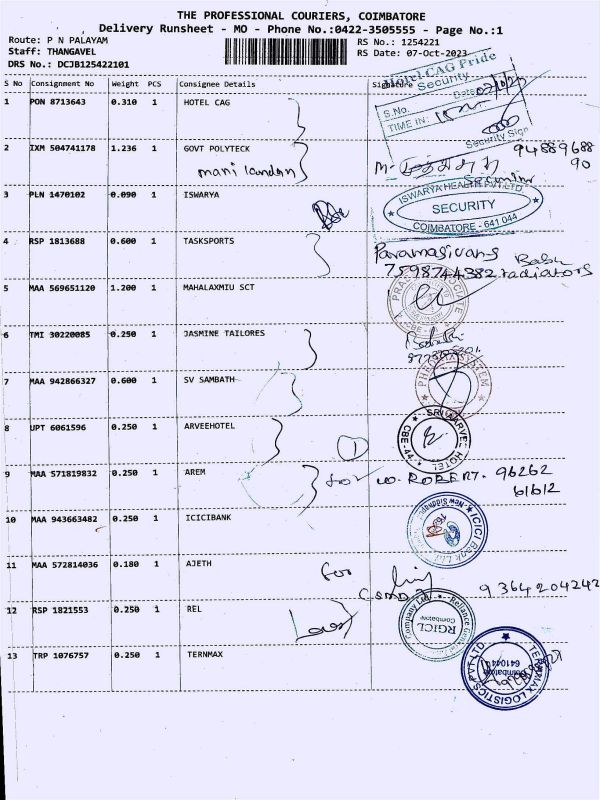 THE PROFESSIONAL COURIERS, COIMBATORE
Delivery Runsheet - MO - Phone No.:0422-3505555 - Page No.:1
Route: P N PALAYAM
RS No.: 1254221
Staff: THANGAVEL
RS Date: 07-Oct-2023
DRS No.: DCJB125422101
S No Consignment No Weight PCS Consignee Details Signature
Hotel CAG Pride
Security
S.No.
Date
TIME IN:
Security Sign
1 PON 8713643 0.310 1 HOTEL CAG
2 IXM 504741178 1.236 1 GOVT POLYTECK
94889688
90
mani
M-
3 PLN 1470102 0.090 1 ISWARYA
ISWARYA HEALTH PVT LTD
SECURITY
COIMBATORE - 641 044
4 RSP 1813688 0.600 1 TASKSPORTS
7598744382 radiators
5 MAA 569651120 1.200 1 MAHALAXMIU SCT
6 TMI 30220085 0.250 1 JASMINE TAILORES
7 MAA 942866327 0.600 1 SV SAMBATH
8 UPT 6061596 0.250 1 ARVEEHOTEL
SRI ARVEE HOTEL
CBE-44
1
9 MAA 571819832 0.250 1 AREM
for
ROBERT. 96262
61612
10 MAA 943663482 0.250 1 ICICIBANK
ICICI Bank Ltd
11 MAA 572814036 0.180 1 AJETH
for
9364204242
12 RSP 1821553 0.250 1 REL
RGICL
Coimbatore
13 TRP 1076757 0.250 1 TERNMAX
LOGISTICS PVT LTD
Coimbatore